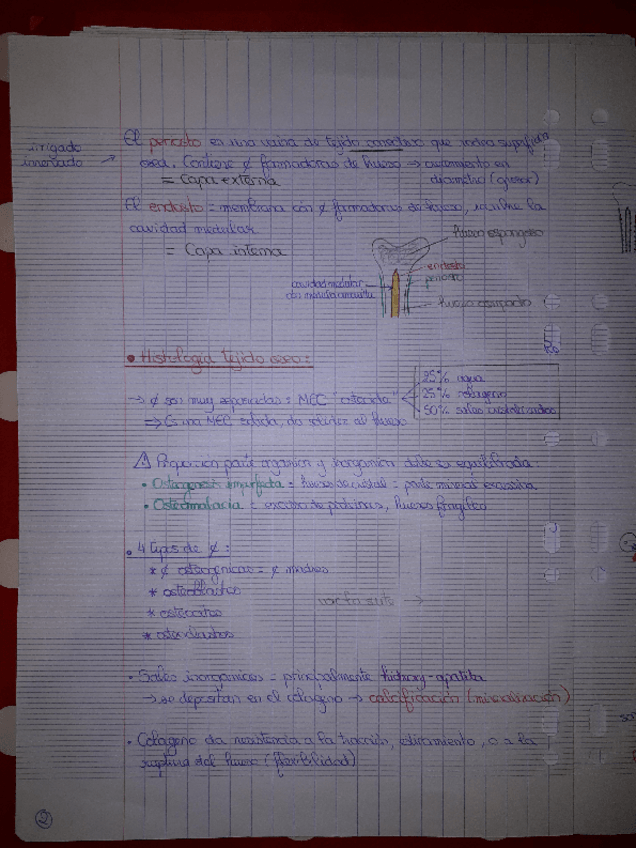 El periosto es una vaina de tejido conectivo que rodea superficie
irrigado
inervado →
osea. Contiene ¢ formadoras de hueso → crecimiento en
= Capa externa
diametro (grosor)
El endostio = membrana con ¢ formadoras de hueso, la
cavidad medular.
= Capa interna
hueso esponjoso
endostio
periostio
cavidad medular
hueso compacto
• Histología tejido óseo:
→ ¢ son muy separadas = MEC "osteoide"
25% agua
25% colageno
50% sales cristalizadas
=> Es una MEC solida, da solidez al hueso
⚠ Proporcion parte organica y inorganica debe ser equilibrada.
• Osteogenesis imperfecta = huesos de cristal = parte mineral excesiva
• Osteomalacia = exceso de proteinas, huesos fragiles
• 4 tipos de ¢ :
* ¢ osteogenicas = ¢ madres
* osteoblastos
* osteocitos
* osteoclastos
• Sales inorganicas = principalmente hidroxy-apatita
→ se depositan en el colageno → calcificación (mineralización)
• Colageno da resistencia a la tracción, estiramiento, o a la
ruptura del hueso (flexibilidad)
2